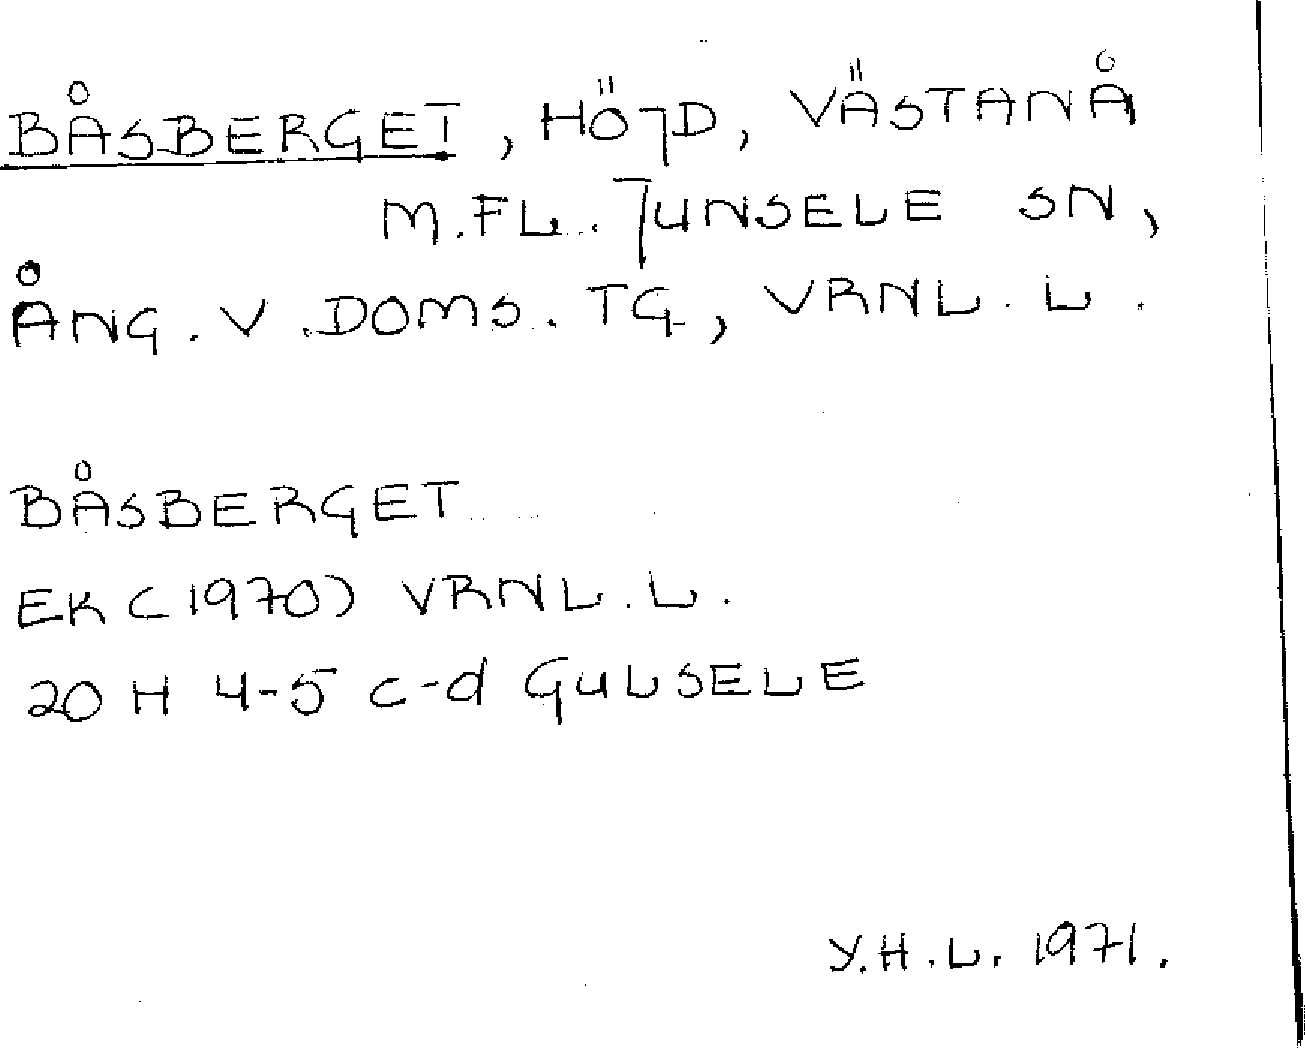 BÅSBERGET, HÖJD, VÄSTANÅ
M.FL. JUNSELE SN,
ÅNG. V. DOMS. TG, VRNL. L.
BÅSBERGET
EK (1970) VRNL. L.
20 H 4-5 c-d GULSELE
Y.H.L. 1971.